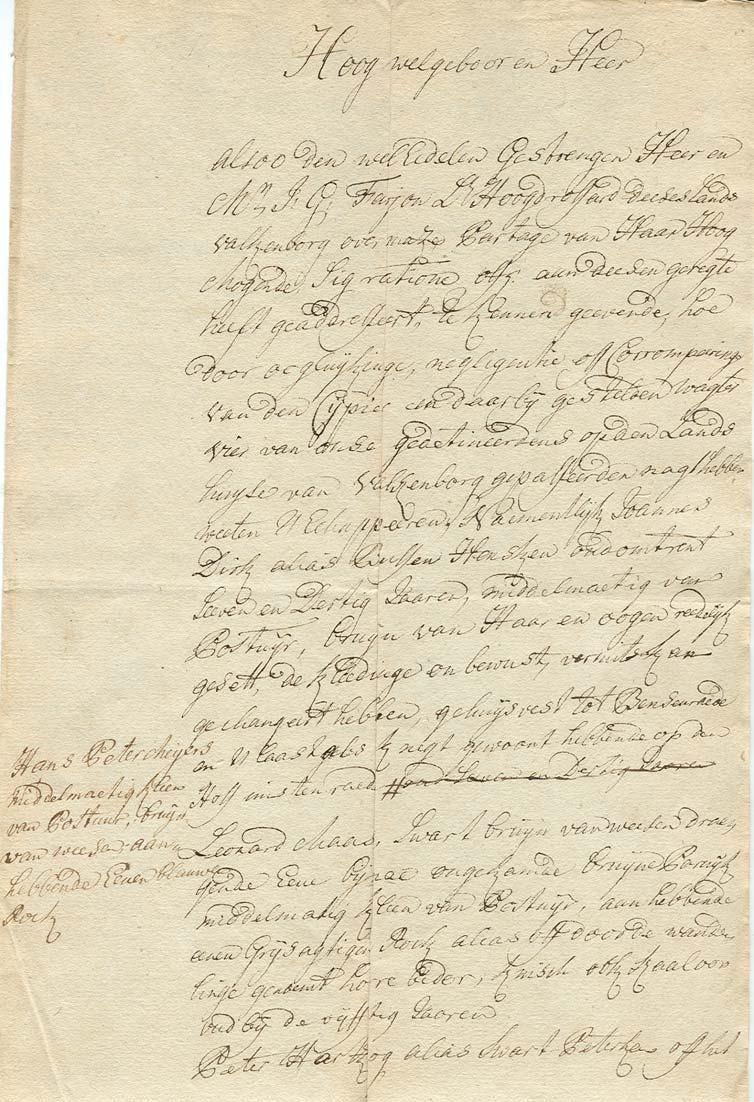 Hoog welgebooren Heer
alsoo den wel Edelen Gestrengen Heer en
Mr. J: G: Farjon Lt Hoogdrossard deeses Lands
valkenborg overmaze Partage van Haar Hoog
Mogende, sig ratione off: aan deesen geregte
heeft geaddresseert, te kennen geevende, hoe
door negligentie, off Corrompering
van den Cipier en daarbij gestelden wagter
vier van onse gedetineerdens op den Lands
huyse van Valkenborg gepasseerden nagt hebben
weeten t'Echappeeren, Naementlijk Joannes
Dirk alias Hensken oud omtrent
Seeven en Dertig Jaaren, middelmaetig van
Postuijr, bruijn van Haar en oogen reedelijk
gesett, de kleedinge onbewust, vermits
gechangeert hebben, gehuijsvest tot
en t'Laast als knegt gewoont hebbende op den
Hoff oud Seeven en Dertig Jaaren
Hans Peter
middelmaetig kleen
van Postuur, bruijn
van weesen aan
hebbende Eenen blauwe
Rock
Leonard Maas, Swart bruijn van weesen draa
gende Eene bijnae ongekamde bruijne Paruijk
middelmatig kleen van Postuijr, aanhebbende
eenen Grijsagtigen Rock alias off door de wande
linge genoemt
oud bij de vijfftig Jaaren
Peter Hartzog alias Swart Peterken off het